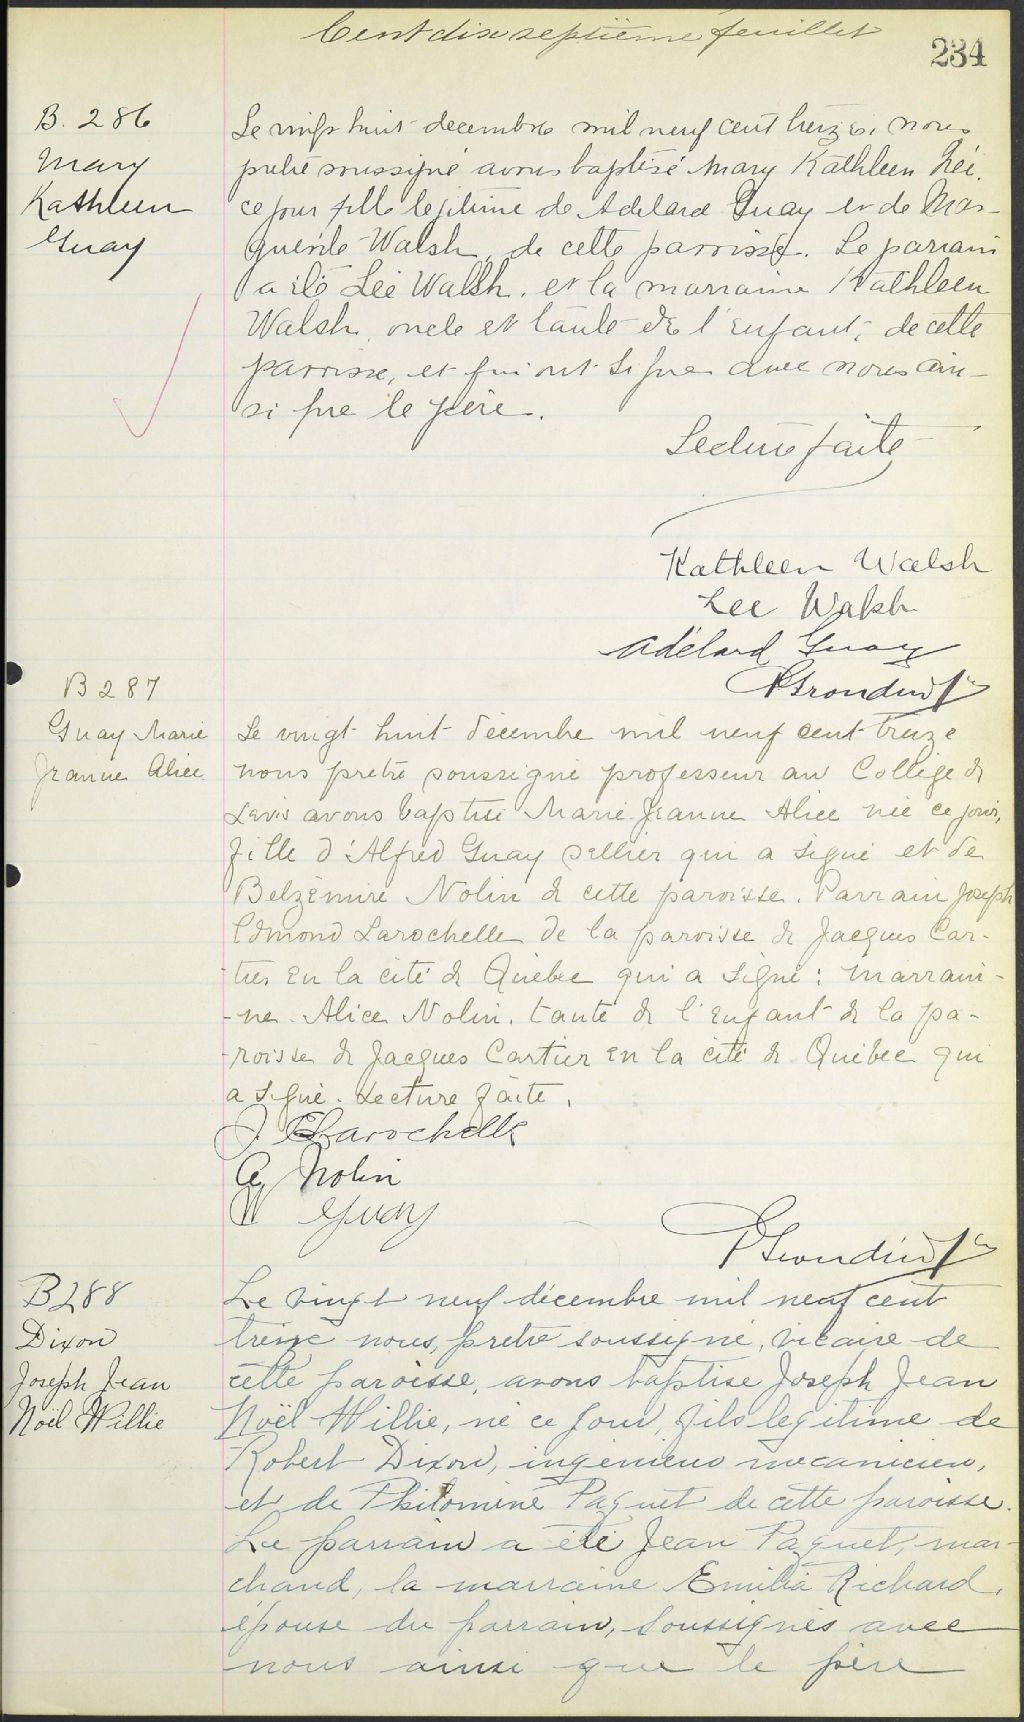 Cent dix septième feuillet
234
B. 286
Mary
Kathleen
Guay
Le vingt huit decembre mil neuf cent treize, nous
prêtre soussigné avons baptisé Mary Kathleen née
ce jour fille legitime de Adelard Guay et de Mar-
guerite Walsh, de cette parroisse. Le parrain
a été Lee Walsh, et la marraine Kathleen
Walsh, oncle et tante de l'enfant, de cette
parroisse, et qui ont signé avec nous ain-
si que le père.
Lecture faite
Kathleen Walsh
Lee Walsh
Adélard Guay
P Grondin ptre
B 287
Guay Marie
Jeanne Alice
Le vingt huit décembre mil neuf cent treize
nous prêtre soussigné professeur au Collège de
Levis avons baptisé Marie Jeanne Alice née ce jour,
fille d'Alfred Guay sellier qui a signé et de
Belzémire Nolin de cette paroisse. Parrain Joseph
Edmond Larochelle de la paroisse de Jacques Car-
tier en la cité de Québec qui a signé : marrai-
-ne Alice Nolin, tante de l'enfant de la pa-
-roisse de Jacques Cartier en la cité de Québec qui
a signé. Lecture faite.
J E Larochelle
A Nolin
Guay
P Grondin ptre
B 288
Dixon
Joseph Jean
Noël Willie
Le vingt neuf décembre mil neuf cent
treize nous, prêtre soussigné, vicaire de
cette paroisse, avons baptisé Joseph Jean
Noël Willie, né ce jour, fils legitime de
Robert Dixon, ingénieur mecanicien,
et de Philomine Paquet de cette paroisse.
Le parrain a été Jean Paquet, mar-
chand, la marraine Emilia Richard,
épouse du parrain, soussignés avec
nous ainsi que le père